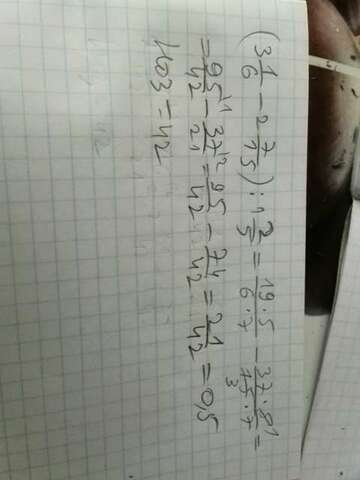 (3 1/6 - 2 7/15) : 1 2/5 = 19·5/6·7 - 37·8¹/15·7 3 =
= 95\1/42 - 37\2/21 = 95/42 - 74/42 = 21/42 = 0,5
НОЗ = 42